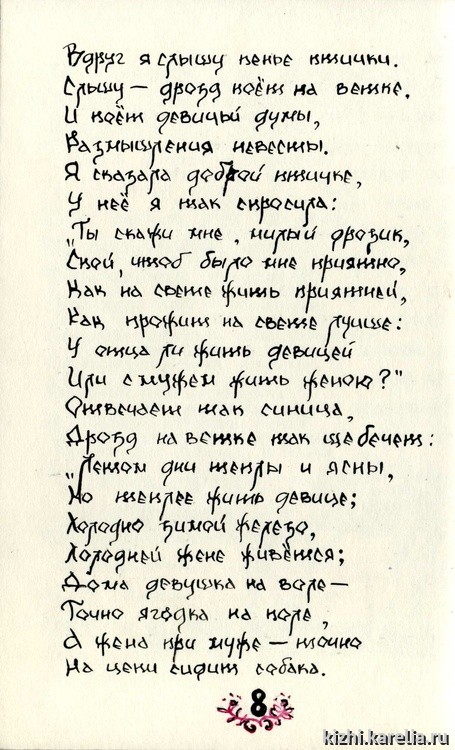 Вдруг я слышу пенье птички.
Слышу — дрозд поёт на ветке,
И поёт девичьи думы,
Размышления невесты.
Я сказала доброй птичке,
У неё я так спросила:
"Ты скажи мне, милый дрозик,
Спой, чтоб было мне приятно,
Как на свете жить приятней,
Как прожит на свете лучше:
У отца ли жить девицей
Или с мужем жить женою?"
Отвечает так синица,
Дрозд на ветке так щебечет:
"Летом дни теплы и ясны,
Но теплее жить девице;
Холодно зимой железо,
Холодней жене живётся;
Дома девушка на воле —
Точно ягодка на поле,
А жена при муже — точно
На цепи сидит собака.
8
kizhi.karelia.ru